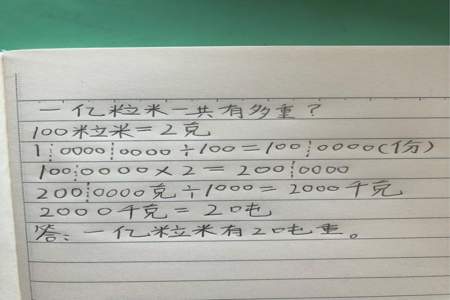 一亿粒米一共有多重?
100粒米=2克
1┊0000┊0000÷100=100┊0000(份)
100┊0000×2=200┊0000
200┊0000克÷1000=2000千克
2000千克=2吨
答:一亿粒米有2吨重。